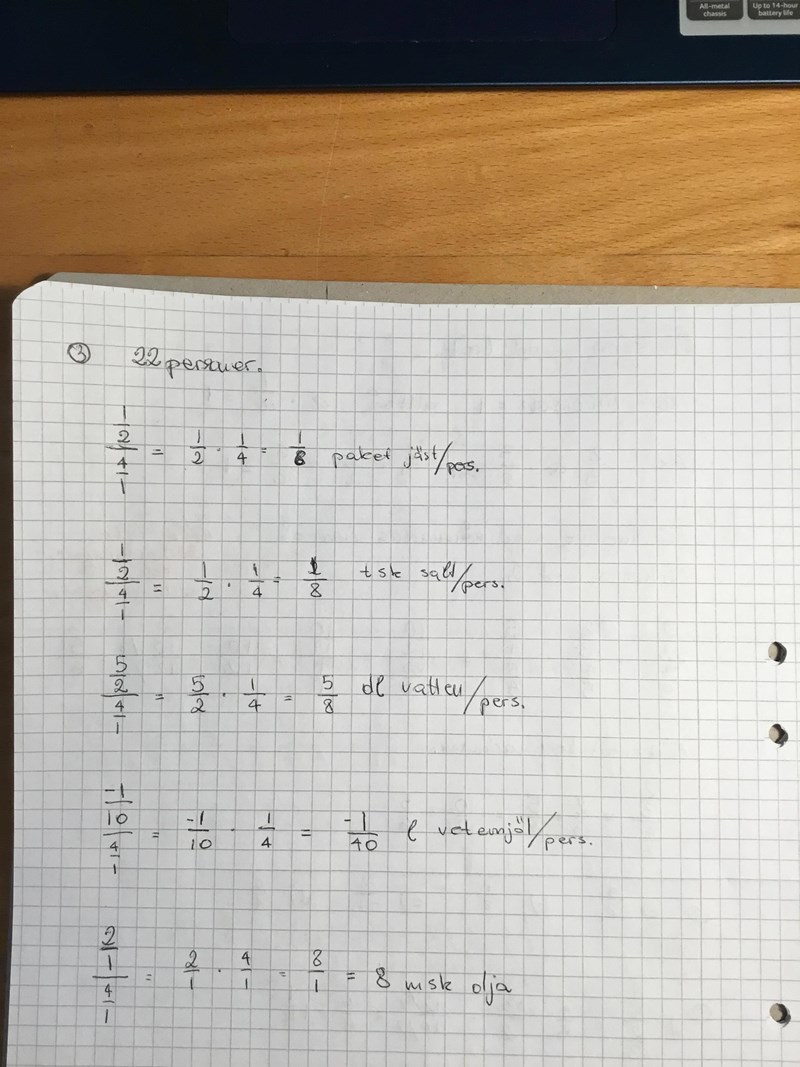 All-metal chassis
Up to 14-hour battery life
③ 22 personer.
\frac{\frac{1}{2}}{\frac{4}{1}} = \frac{1}{2} · \frac{1}{4} = \frac{1}{8} paket jäst/pers.
\frac{\frac{1}{2}}{\frac{4}{1}} = \frac{1}{2} · \frac{1}{4} = \frac{1}{8} tsk salt/pers.
\frac{\frac{5}{2}}{\frac{4}{1}} = \frac{5}{2} · \frac{1}{4} = \frac{5}{8} dl vatten/pers.
\frac{\frac{-1}{10}}{\frac{4}{1}} = \frac{-1}{10} · \frac{1}{4} = \frac{-1}{40} l vetemjöl/pers.
\frac{\frac{2}{1}}{\frac{4}{1}} = \frac{2}{1} · \frac{4}{1} = \frac{8}{1} = 8 msk olja